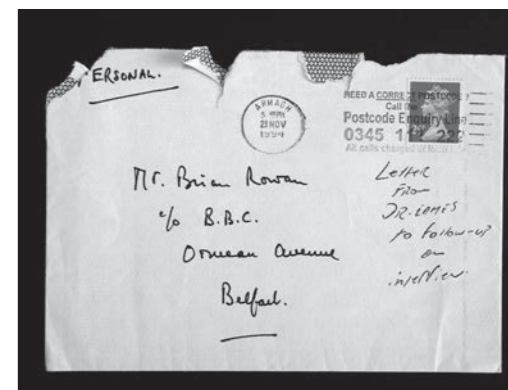 ERSONAL.
ARMAGH
5 PM
21 NOV
1994
NEED A CORRECT POSTCODE?
Call the
Postcode Enquiry Line
0345 11 222
All calls charged
Mr. Brian Rowan
c/o B.B.C.
Ormeau Avenue
Belfast.
Letter
From
DR. EAMES
to follow-up
on
interview.